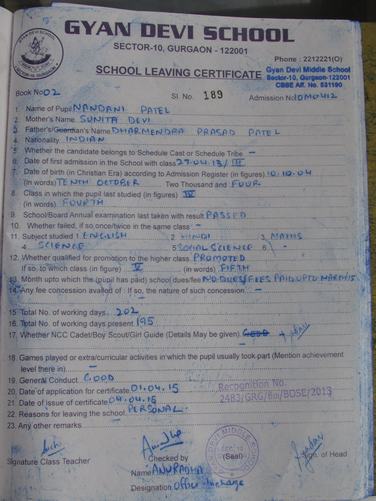 GYAN DEVI SCHOOL
SECTOR-10, GURGAON - 122001
Phone : 2212221(O)
SCHOOL LEAVING CERTIFICATE
Gyan Devi Middle School
Sector-10, Gurgaon-122001
CBSE Aff. No. 531190
Book No 02 Sl. No. 189 Admission No
1. Name of Pupil NANDANI PATEL
2. Mother's Name SUNITA DEVI
3. Father's/Guardian's Name DHARMENDRA PRASAD PATEL
4. Nationality INDIAN
5. Whether the candidate belongs to Schedule Cast or Schedule Tribe -
6. Date of first admission in the School with class 27.04.13/ III
7. Date of birth (in Christian Era) according to Admission Register (in figures) 10.10.04
(in words) TENTH OCTOBER Two Thousand and FOUR
8. Class in which the pupil last studied (in figures) IV
(in words) FOURTH
9. School/Board Annual examination last taken with result PASSED
10. Whether failed, if so, once/twice in the same class : -
11. Subject studied 1 ENGLISH 2 HINDI 3 MATHS
4. SCIENCE 5 SOCIAL SCIENCE 6 -
12. Whether qualified for promotion to the higher class PROMOTED
If so, to which class (in figure) V (in words) FIFTH
13. Month upto which the (pupil has paid) school dues/fee NO DUES/FEES PAID UPTO MARCH/15
14. Any fee concession availed of : If so, the nature of such concession. -
15. Total No. of working days. 202
16. Total No. of working days present 195
17. Whether NCC Cadet/Boy Scout/Girl Guide (Details May be given)
18. Games played or extra/curricular activities in which the pupil usually took part (Mention achievement
level there in)
19. General Conduct. GOOD
20. Date of application for certificate 01.04.15
21. Date of issue of certificate 04.04.15
22. Reasons for leaving the school PERSONAL.
23. Any other remarks
Recognition No.
Signature Class Teacher
Checked by
Name ANURADHA
Designation Office Incharge
(Seal)
Sign. of Head